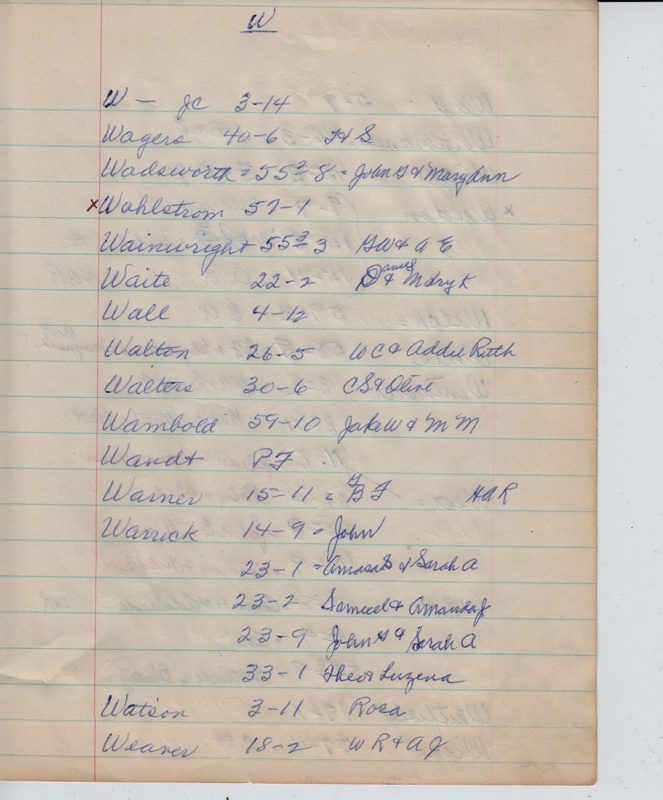 W
W — JC 3-14
Wagers 40-6 H S
Wadsworth = 55²-8 = John G & Mary Ann
x Wahlstrom 57-1
Wainwright 55³-3 GW & A E
Waite 22-2 Daniel & Mary K
Wall 4-12
Walton 26-5 WC & Addie Ruth
Walters 30-6 CS & Olive
Wambold 59-10 Jake W & M M
Wandt PF
Warner 15-11 = B F HAR
Warrick 14-9 = John
23-1 = Amasa S & Sarah A
23-2 Samuel & Amanda J
23-9 John & Sarah A
33-1 Theo & Luzena
Watson 3-11 Rosa
Weaver 18-2 W R & A J